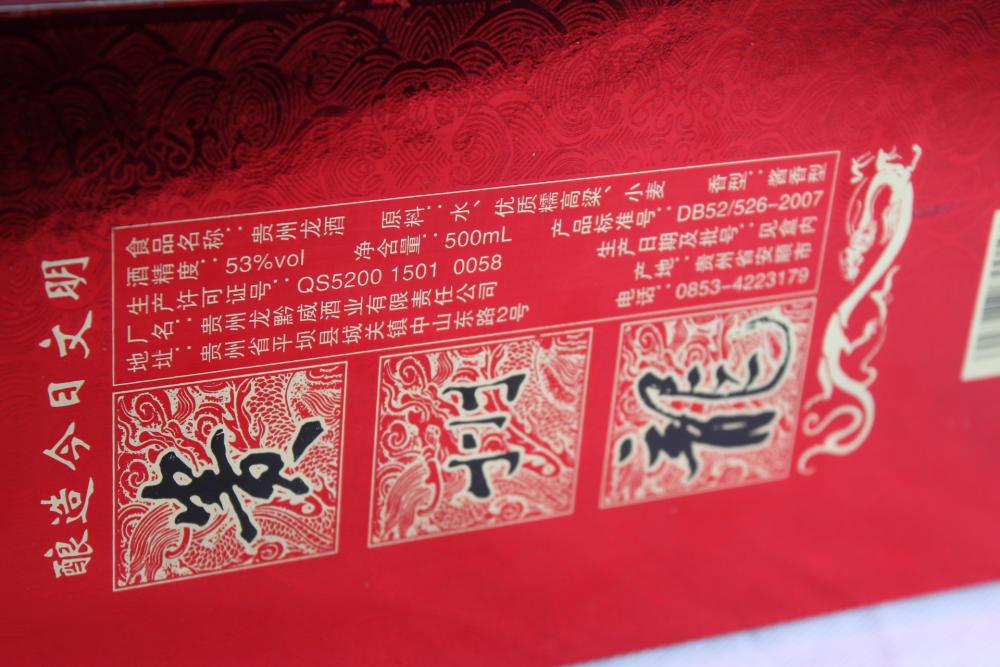 酿造今日文明
食品名称：贵州龙酒　原料：水、优质糯高粱、小麦　香型：酱香型
酒精度：53%vol　净含量：500mL　产品标准号：DB52/526-2007
生产许可证号：QS5200 1501 0058　生产日期及批号：见盒内
厂名：贵州龙黔威酒业有限责任公司　产地：贵州省安顺市
地址：贵州省平坝县城关镇中山东路2号　电话：0853-4223179